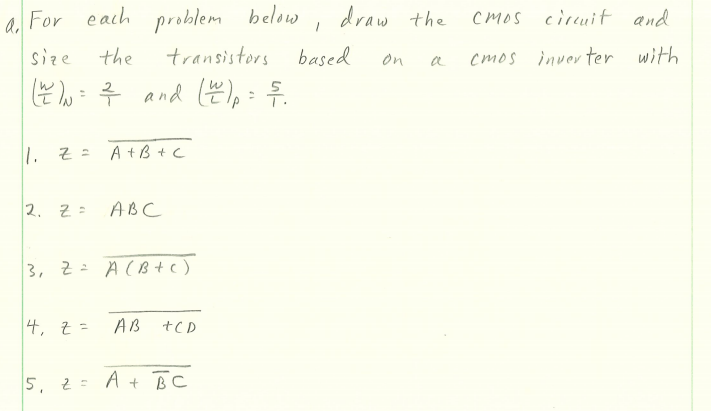 a. For each problem below, draw the CMOS circuit and
size the transistors based on a CMOS inverter with
(W/L)N = 2/1 and (W/L)P = 5/1.
1. Z = \overline{A + B + C}
2. Z = ABC
3, Z = \overline{A(B+C)}
4, Z = \overline{AB +CD}
5, Z = \overline{A + \overline{B}C}